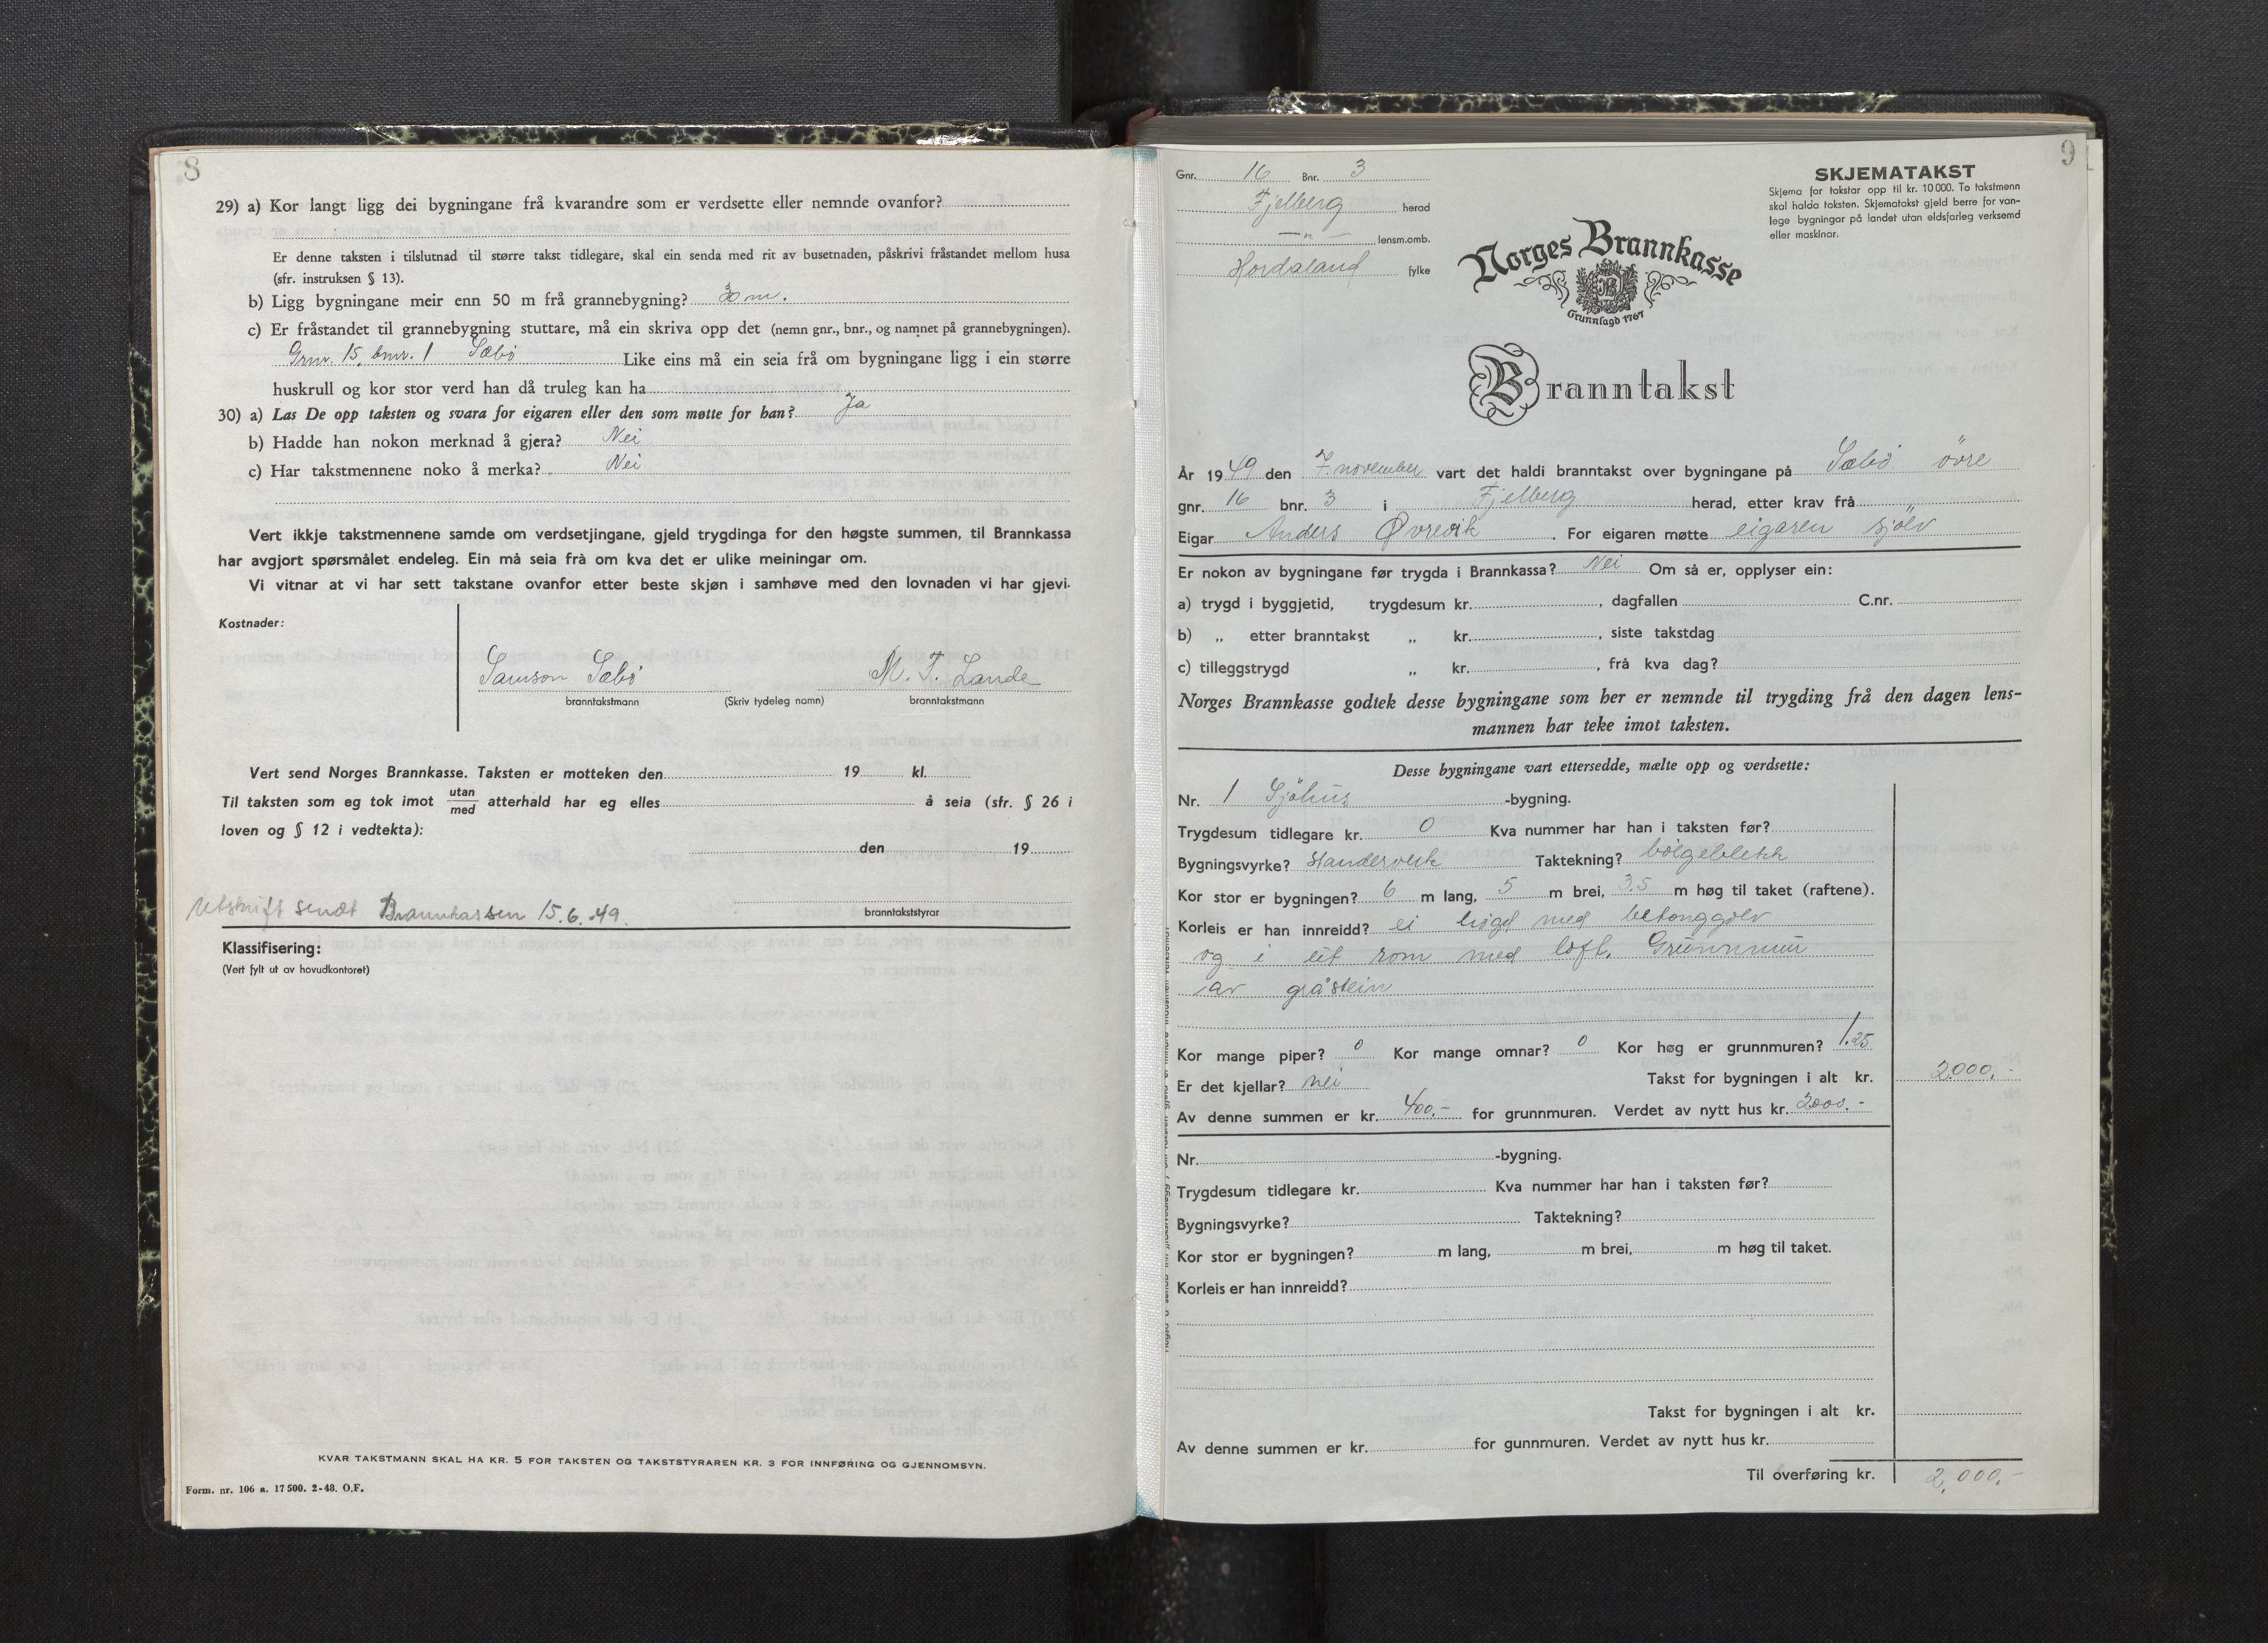 8
29) a) Kor langt ligg dei bygningane frå kvarandre som er verdsette eller nemnde ovanfor?
Er denne taksten i tilslutnad til større takst tidlegare, skal ein senda med rit av busetnaden, påskrivi fråstandet mellom husa
(sfr. instruksen § 13).
b) Ligg bygningane meir enn 50 m frå grannebygning? m.
c) Er fråstandet til grannebygning stuttare, må ein skriva opp det (nemn gnr., bnr., og namnet på grannebygningen).
Gnr. 15, bnr. 1 Sæbö Like eins må ein seia frå om bygningane ligg i ein større
huskrull og kor stor verd han då truleg kan ha
30) a) Las De opp taksten og svara for eigaren eller den som møtte for han? Ja
b) Hadde han nokon merknad å gjera? Nei
c) Har takstmennene noko å merka? Nei
Vert ikkje takstmennene samde om verdsetjingane, gjeld trygdinga for den høgste summen, til Brannkassa
har avgjort spørsmålet endeleg. Ein må seia frà om kva det er ulike meiningar om.
Vi vitnar at vi har sett takstane ovanfor etter beste skjøn i samhøve med den lovnaden vi har gjevi.
Kostnader:
Samson Sæbö M. T. Lande
branntakstmann (Skriv tydeleg namn) branntakstmann
Vert send Norges Brannkasse. Taksten er motteken den 19 kl.
Til taksten som eg tok imot utan/med atterhald har eg elles å seia (sfr. § 26 i
loven og § 12 i vedtekta):
den 19
Utskrift sendt Brannkassen 15.6.49.
branntakststyrar
Klassifisering:
(Vert fylt ut av hovudkontoret)
KVAR TAKSTMANN SKAL HA KR. 5 FOR TAKSTEN OG TAKSTSTYRAREN KR. 3 FOR INNFØRING OG GJENNOMSYN.
Form. nr. 106 a. 17 500. 2-48. O.F.
9
Gnr. 16 Bnr. 3
Fjelberg herad
—"— lensm.omb.
Hordaland fylke
SKJEMATAKST
Skjema for takstar opp til kr. 10 000. To takstmenn
skal halda taksten. Skjematakst gjeld berre for van-
lege bygningar på landet utan eldsfarleg verksemd
eller maskinar.
Norges Brannkasse
Grunnlagd 1767
Branntakst
År 1949 den 7. november vart det haldi branntakst over bygningane på Sæbö övre
gnr. 16 bnr. 3 i Fjelberg herad, etter krav frå "
Eigar Anders Øvrevik. For eigaren møtte eigaren sjölv
Er nokon av bygningane før trygda i Brannkassa? Nei Om så er, opplyser ein:
a) trygd i byggjetid, trygdesum kr., dagfallen C.nr.
b) „ etter branntakst „ kr., siste takstdag
c) tilleggstrygd „ kr., frå kva dag?
Norges Brannkasse godtek desse bygningane som her er nemnde til trygding frå den dagen lens-
mannen har teke imot taksten.
Desse bygningane vart ettersedde, mælte opp og verdsette:
Nr. 1 Sjöhus -bygning.
Trygdesum tidlegare kr. 0 Kva nummer har han i taksten før?
Bygningsvyrke? Standerverk Taktekning? bölgeblekk
Kor stor er bygningen? 6 m lang, 5 m brei, 3.5 m høg til taket (raftene).
Korleis er han innreidd? ei högd med betonggolv
og i eit rom med loft. Grunnmur
av gråstein
Kor mange piper? 0 Kor mange omnar? 0 Kor høg er grunnmuren? 1.25
Er det kjellar? nei Takst for bygningen i alt kr. 2000.-
Av denne summen er kr. 400.- for grunnmuren. Verdet av nytt hus kr. 2000.-
Nr. -bygning.
Trygdesum tidlegare kr. Kva nummer har han i taksten før?
Bygningsvyrke? Taktekning?
Kor stor er bygningen? m lang, m brei, m høg til taket.
Korleis er han innreidd?
Takst for bygningen i alt kr.
Av denne summen er kr. for gunnmuren. Verdet av nytt hus kr.
Til overføring kr. 2,000.-